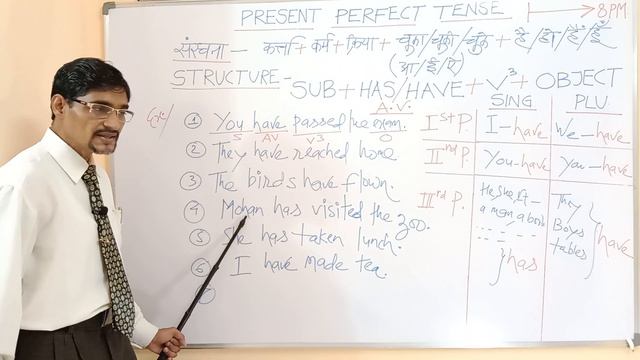 PRESENT PERFECT TENSE → 8PM
संरचना — कर्त्ता + कर्म + क्रिया + चुका/चुकी/चुके + है/हो/हैं/हूँ
(आ/ई/ए)
STRUCTURE - SUB + HAS/HAVE + V3 + OBJECT
A.V.
Ex/ ① You have passed the exam.
S AV V3 O
② They have reached home
③ The birds have flown.
④ Mohan has visited the zoo.
⑤ She has taken lunch.
⑥ I have made tea.
SING PLU.
Ist P. I - have We - have
IInd P. You - have You - have
IIIrd P. He, She, It - They
Boys
tables
has have